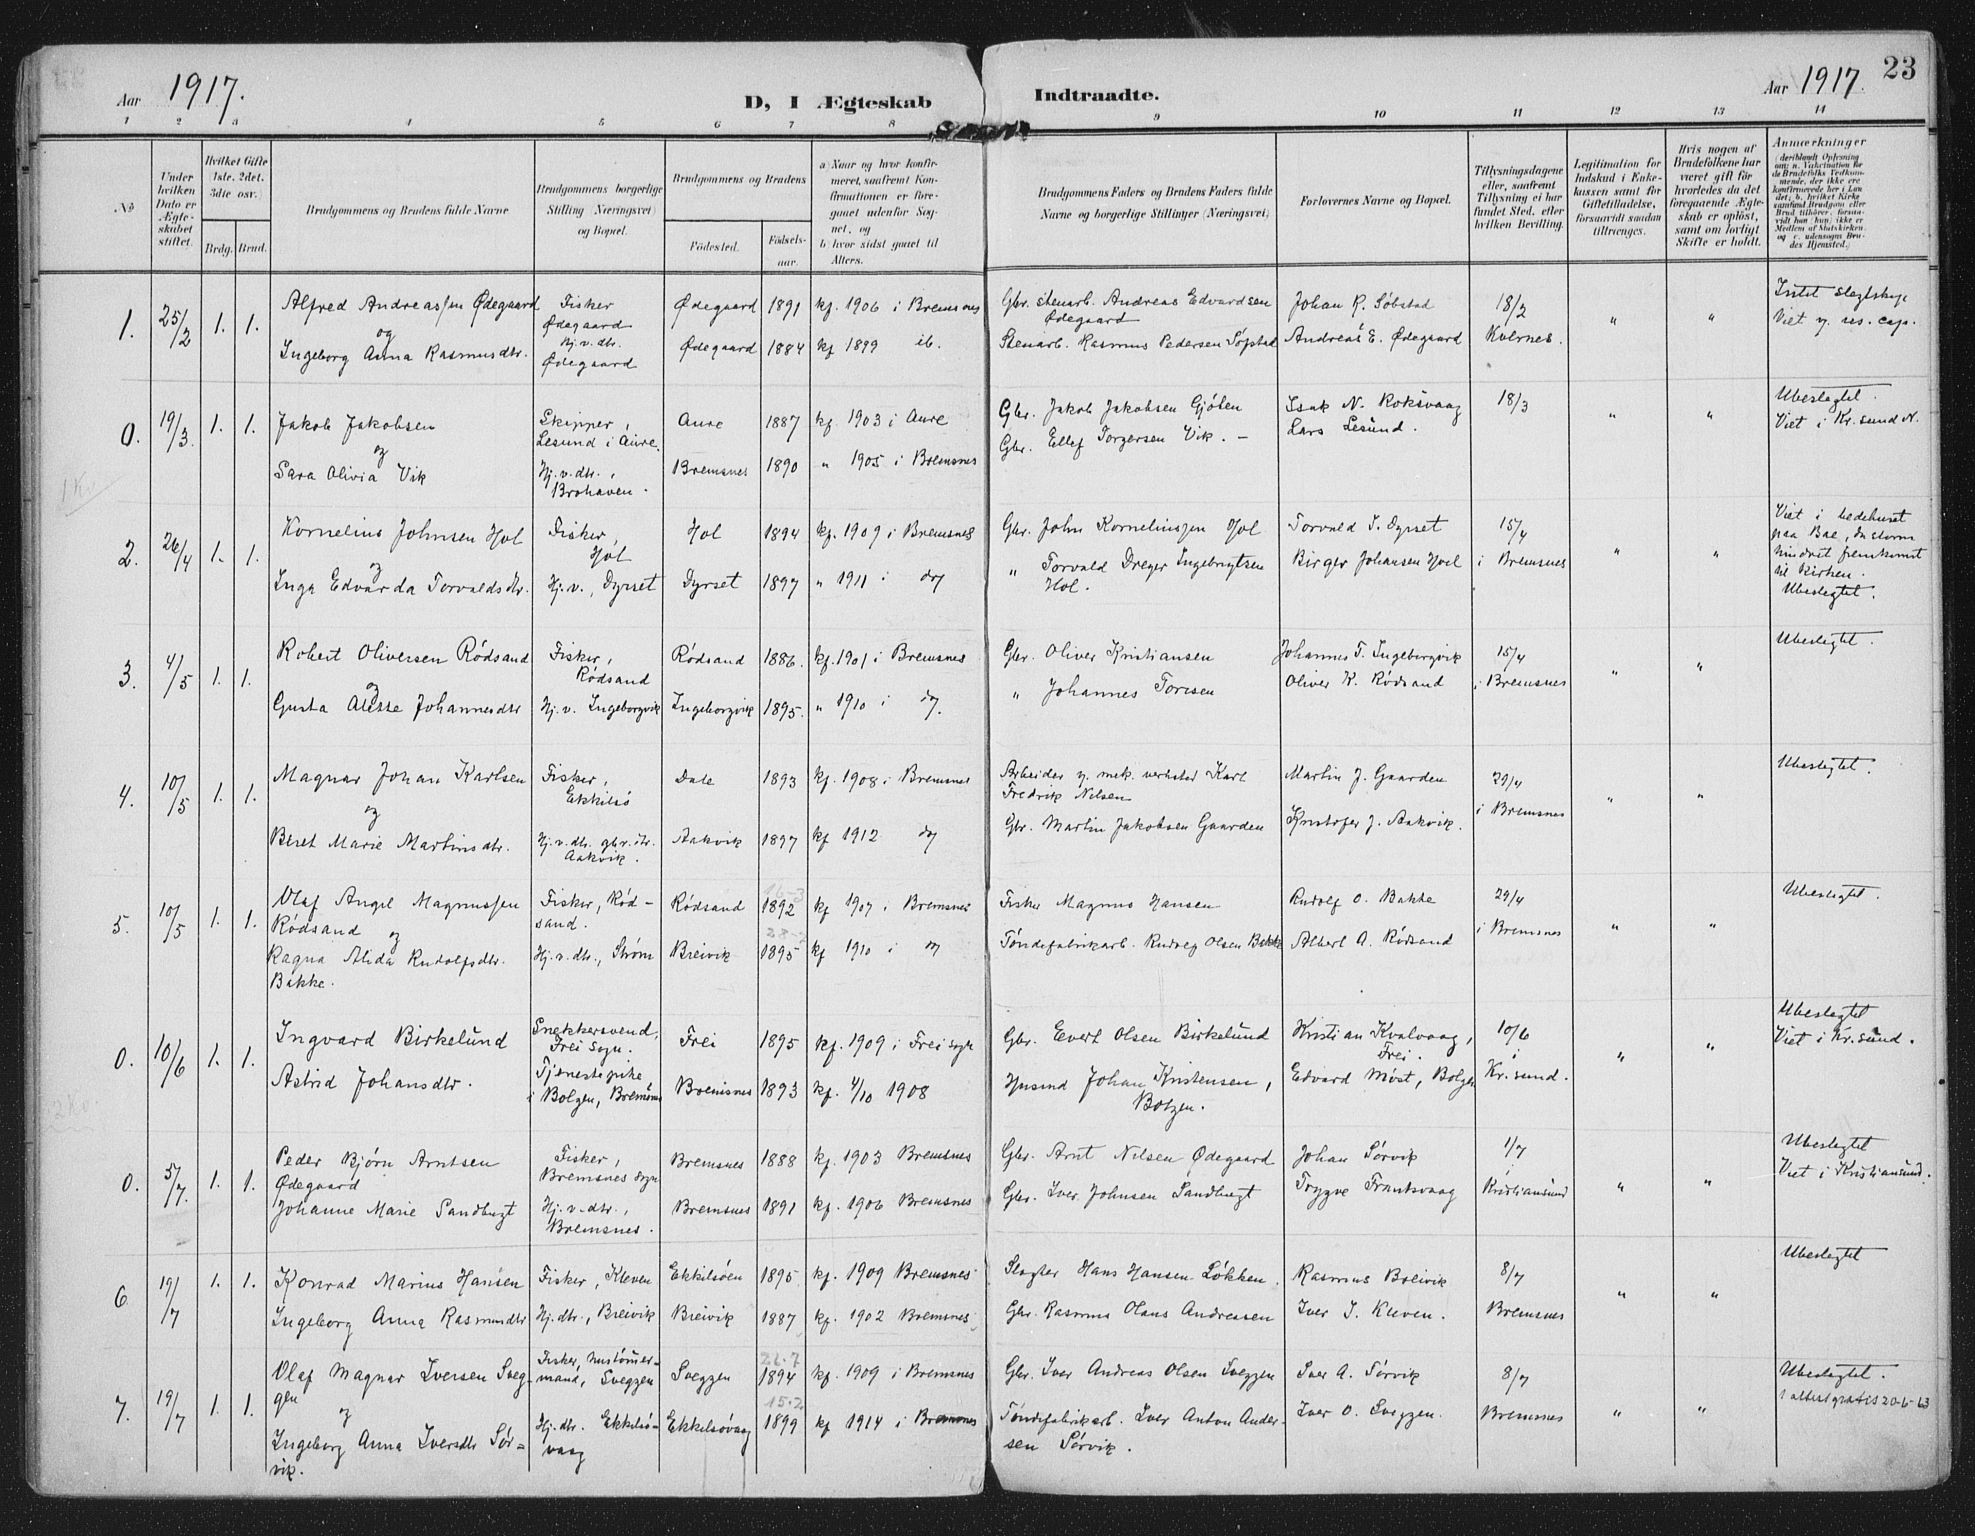 Aar 1917.
D, I Ægteskab Indtraadte.
Aar 1917. 23
1 2 3 4 5 6 7 8 9 10 11 12 13 14
No
Under hvilken Dato er Ægteskabet stiftet.
Hvilket Gifte 1ste. 2det. 3die osv.
Brdg. Brud.
Brudgommens og Brudens fulde Navne
Brudgommens borgerlige Stilling (Næringsvei) og Bopæl.
Brudgommens og Brudens
Fødested. Fødselsaar.
a) Naar og hvor konfirmeret, saafremt Konfirmationen er foregaaet udenfor Sognet, og
b) hvor sidst gaaet til Alters.
Brudgommens Faders og Brudens Faders fulde Navne og borgerlige Stillinger (Næringsvei)
Forlovernes Navne og Bopæl.
Tillysningsdagene eller, saafremt Tillysning ei har fundet Sted, efter hvilken Bevilling.
Legitimation for Indskud i Enkekassen samt for Giftetilladelse, forsaavidt saadan tiltrænges.
Hvis nogen af Brudefolkene har været gift før hvorledes da det foregaaende Ægteskab er opløst, samt om lovligt Skifte er holdt.
Anmærkninger
1. 25/2 1. 1. Alfred Andreassen Ødegaard Fisker Ødegaard Ødegaard 1891 kf. 1906 i Bremsnes Gbr. stenarb. Andreas Edvardsen Ødegaard Johan R. Søbstad 18/2 " " Intet slegtskap
og
Ingeborg Anna Rasmusdtr. Hj.v.dtr. Ødegaard Ødegaard 1884 kf 1899 ib. Stenarb. Rasmus Pedersen Søpstad Andreas E. Ødegaard Kvernes. Viet v. res. cap.
0. 19/3 1. 1. Jakob Jakobsen Skipper, Lesund i Aure. Aure 1887 kf. 1903 i Aure Gbr. Jakob Jakobsen Gjølen Isak N. Roksvaag 18/3 " " Ubeslegtet.
og
Sara Olivia Vik Hj.v.dtr., Brohaven. Bremsnes 1890 " 1905 i Bremsnes Gbr. Ellef Torgersen Vik. – Lars Lesund. Viet i Kr.sund N.
1 Kv
2. 26/4 1. 1. Kornelius Johnsen Hol Fisker, Hol Hol 1894 kf. 1909 i Bremsnes Gbr. John Korneliussen Hol Torvald I. Dyrset 15/4 " " Viet i bedehuset
og paa Bae, da storm
hindret fremkomst
Inga Edvarda Torvaldsdtr. Hj.v., Dyrset Dyrset 1897 " 1911 i do " Torvald Dreyer Ingebrigtsen Hol. Birger Johansen Hoel i Bremsnes til Kirken.
Ubeslegtet.
3. 4/5 1. 1. Robert Oliversen Rødsand Fisker, Rødsand Rødsand 1886. kf. 1901 i Bremsnes Gbr. Oliver Kristiansen Johannes T. Ingeborgvik 15/4 " " Ubeslegtet.
og
Gusta Alette Johannesdtr Hj.v. Ingeborgvik Ingeborgvik 1895. " 1910 i do. " Johannes Toresen Oliver K. Rødsand i Bremsnes
4. 10/5 1. 1. Magnar Johan Karlsen Fisker, Ekkilsø Dale 1893 kf. 1908 i Bremsnes Arbeider v. mek. verksted Karl Fredrik Nilsen Martin J. Gaarden 29/4 " " Ubeslegtet.
og
Beret Marie Martinsdtr. Hj.v.dtr. gbr.dtr. Aakvik. Aakvik 1897 kf 1912 do Gbr. Martin Jakobsen Gaarden Kristofer J. Aakvik. i Bremsnes
5. 10/5 1. 1. Olaf Angel Magnussen Rødsand Fisker, Rødsand. Rødsand 16-3 1892 kf 1907 i Bremsnes Fisker Magnus Hansen Rudolf O. Bakke 29/4 " " Ubeslegtet.
og
Ragna Alida Rudolfsdtr. Bakke. Hj.v.dtr., Strøm Breivik 1895 kf 1910 i do Tøndefabrikarb. Rudolf Olsen Bakke Albert A. Rødsand i Bremsnes
0. 10/6 1. 1. Ingvard Birkelund Snekkersvend, Frei sogn. Frei 1895 kf. 1909 i Frei sogn Gbr. Evert Olsen Birkelund Kristian Kvalvaag, Frei. 10/6 i " " Ubeslegtet
Astrid Johansdtr. Tjenestepike i Bolgen, Bremsnes Bremsnes 1893 kf. 4/10 1908 Husmd Johan Kristensen, Bolgen. Edvard Møst, Bolgen Kr.sund. Viet i Kr.sund.
2 Kv.
0. 5/7. 1. 1. Peder Bjørn Arntsen Ødegaard Fisker, Bremsnes sogn Bremsnes 1888 kf. 1903 Bremsnes Gbr. Arnt Nilsen Ødegaard Johan Sørvik 1/7 " " Ubeslegtet
Johanne Marie Sandbugt Hj.v.dtr., Bremsnes. Bremsnes 1891 kf. 1906 Bremsnes Gbr. Iver Johnsen Sandbugt Trygve Frantsvaag Kristiansund Viet i Kristiansund.
6. 19/7 1. 1. Konrad Marius Hansen Fisker, Kleven Ekkilsøen 1895 kf. 1909 Bremsnes Slagter Hans Hansen Løkken. Rasmus Breivik 8/7 " " Ubeslegtet
Ingeborg Anna Rasmusdtr Hj.dtr., Breivik Breivik 1887 kf. 1902 Bremsnes Gbr. Rasmus Olaus Andreasen Iver I. Kleven. Bremsnes
7. 19/7 1. 1. Olaf Magnar Iversen Sveggen Fisker, hustømermand, Sveggen Sveggen 1894 kf. 1909 i Bremsnes Gbr. Iver Andreas Olsen Sveggen Iver A. Sørvik 8/7 " " Ubeslegtet.
og 1 attest gratis 20-6-63
Ingeborg Anna Iversdtr Sørvik. Hj.dtr. Ekkilsøvaag Ekkilsøvaag 15.2 1899 kf 1914 i Bremsnes Tøndefabrikarb. Iver Anton Andersen Sørvik. Iver O. Sveggen. Bremsnes